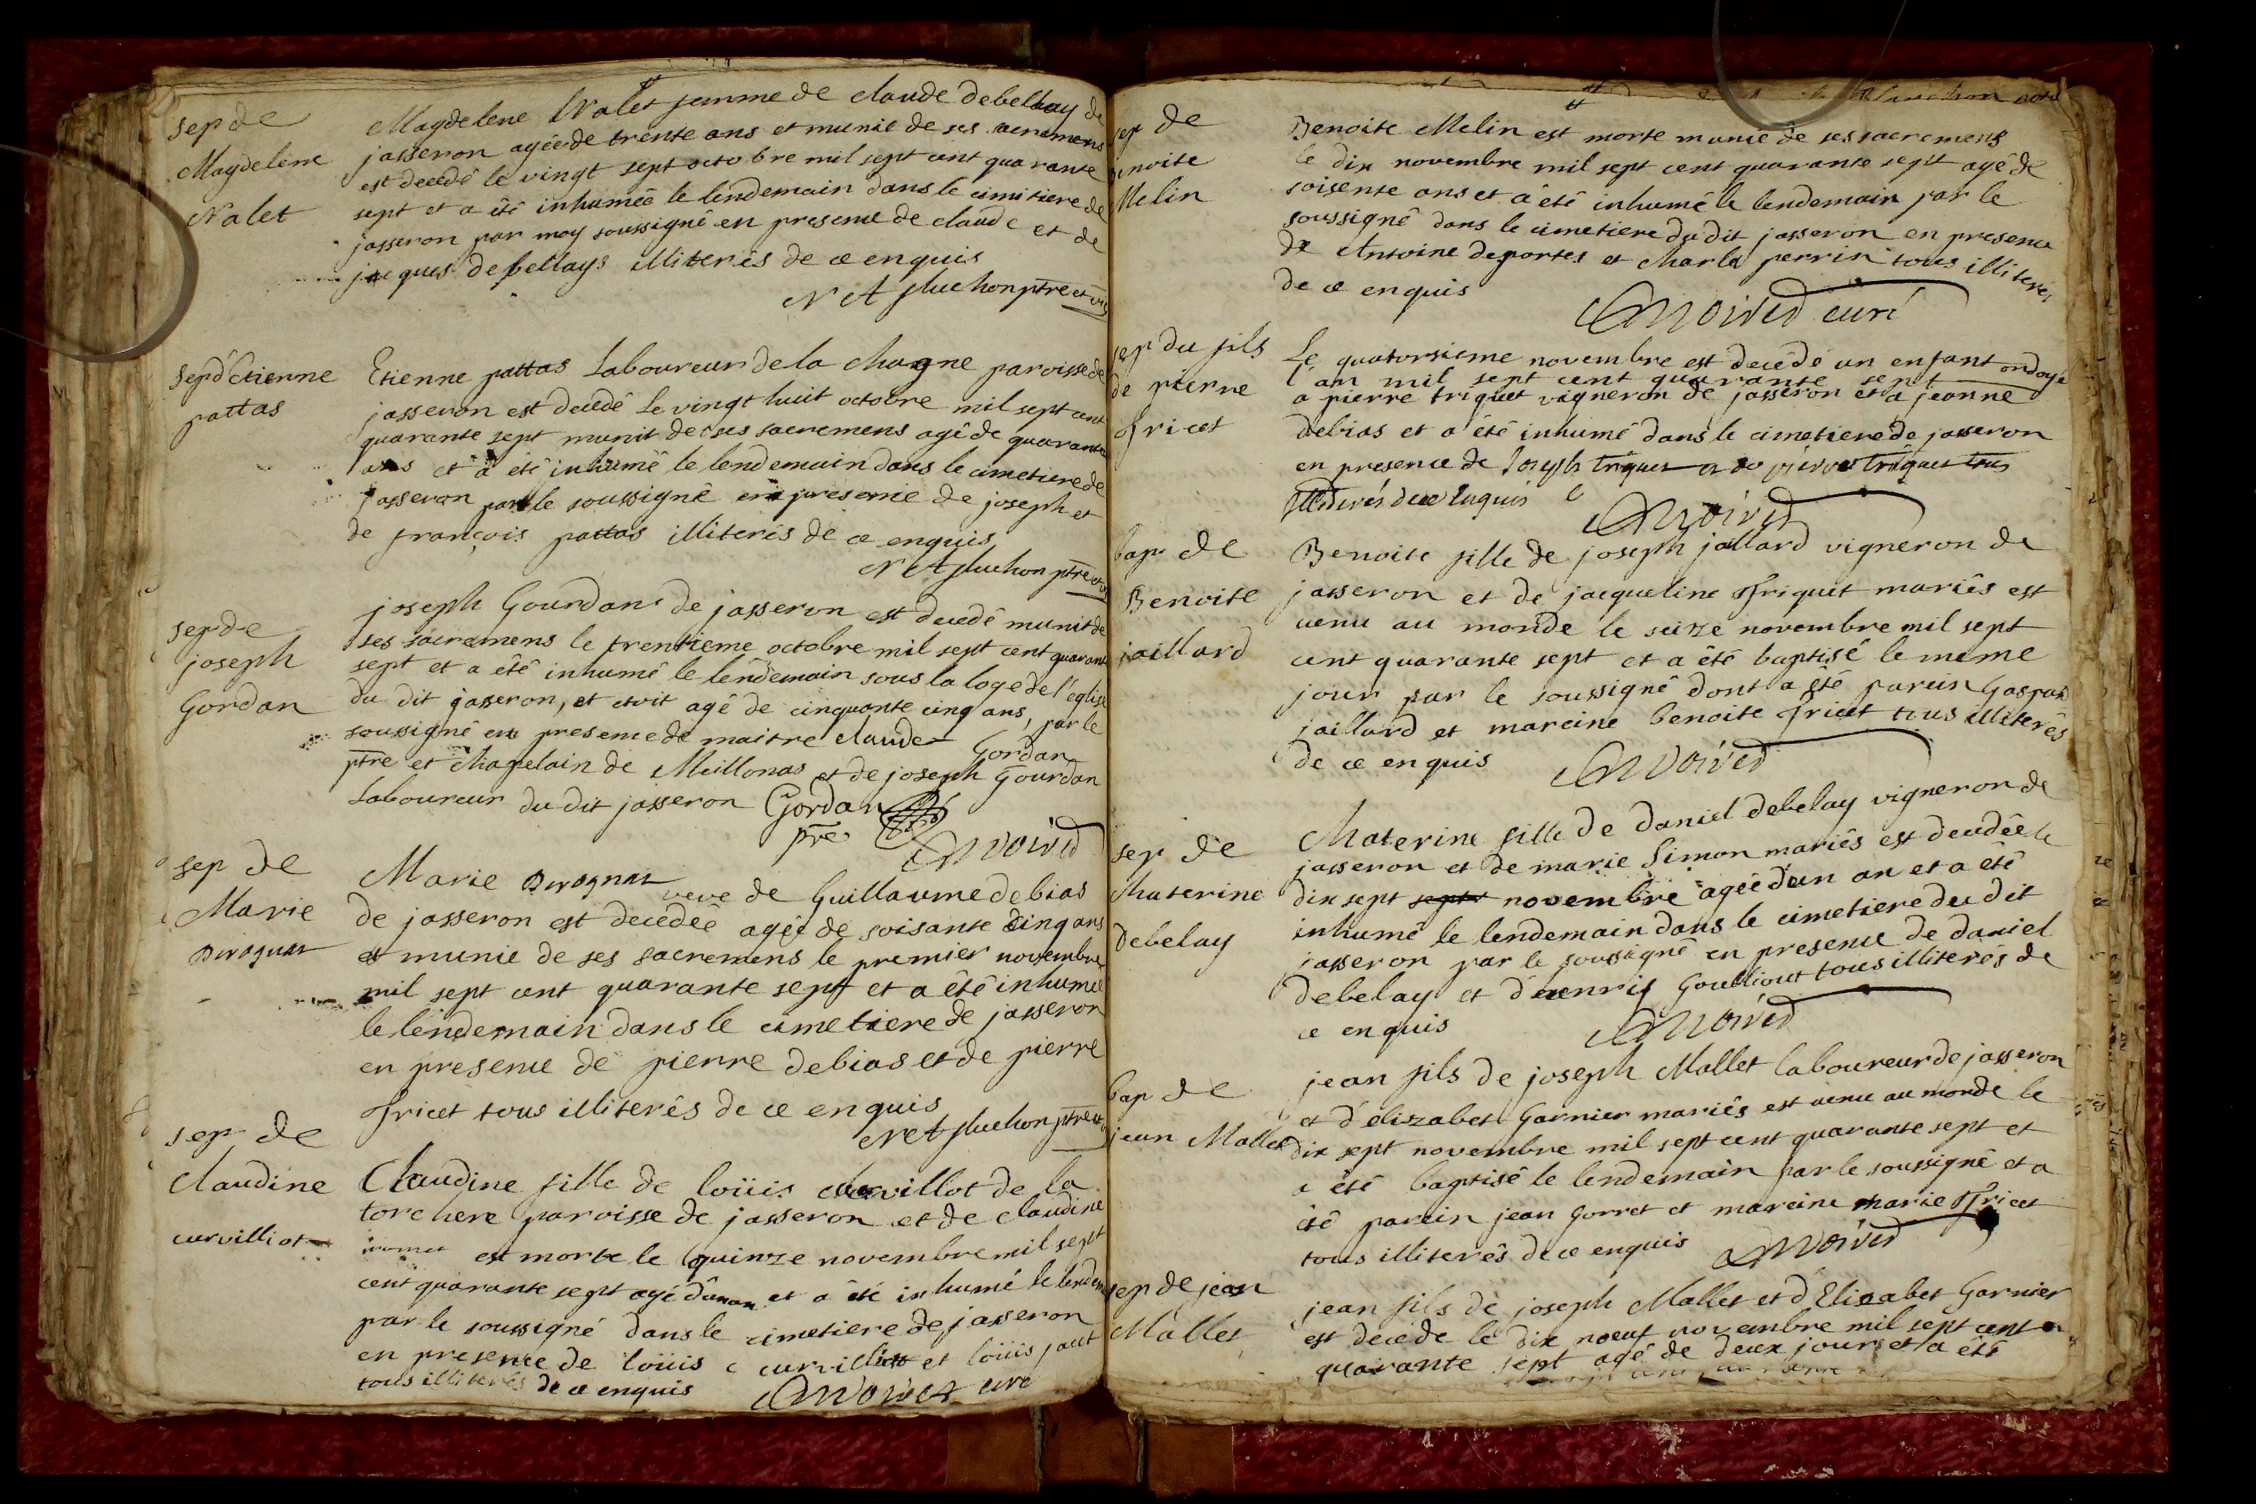 sep de
Magdelene
Nalet
Magdelene Nalet femme de claude debellay de
jasseron agée de trente ans et munie de ses sacremens
est decedé le vingt sept octobre mil sept cent quarante
sept et a été inhumée le lendemain dans le cimitiere de
jasseron par moy soussigné en presence de claude et de
jacques debellays illiterés de ce enquis
pluchon ptre et vic
sep d'étienne
pattas
Etienne pattas Laboureur de la chagne paroisse de
jasseron est decedé Le vingt huit octobre mil sept cent
quarante sept munit de ses sacremens agé de quarante
ans et a été inhumé le lendemain dans le cimetiere de
jasseron par le soussigné en presence de joseph et
de françois pattas illiterés de ce enquis
pluchon ptre et vic
sep de
joseph
Gordan
joseph Gourdan de jasseron est decedé munit de
ses sacremens le trentieme octobre mil sept cent quarante
sept et a été inhumé le lendemain sous la loge de l'eglise
du dit jasseron, et etoit agé de cinquante cinq ans, par le
soussigné en presence de maitre claude Gordan
ptre et chapelain de Meillonas et de joseph Gourdan
Laboureur du dit jasseron Gordan
pre
sep de
Marie
Marie veve de Guillaume debias
de jasseron est decedée agée de soisante cinq ans
et munie de ses sacremens le premier novembre
mil sept cent quarante sept et a été inhumée
le lendemain dans le cimetiere de jasseron
en presence de pierre debias et de pierre
fricet tous illiterés de ce enquis
pluchon ptre et
sep de
claudine
curvilliot
Claudine fille de loüis curvillot de la
torchere paroisse de jasseron et de claudine
est morte le quinze novembre mil sept
cent quarante sept agé d'un an et a été inhumé le lendem
par le soussigné dans le cimetiere de jasseron
en presence de loüis curvilliot et loüis
tous illiterés de ce enquis curé
sep de
benoite
Melin
Benoite Melin est morte munie de ses sacremens
le dix novembre mil sept cent quarante sept agé de
soisente ans et a été inhumé le lendemain par le
soussigné dans le cimetiere du dit jasseron en presence
de Antoine deportes et charle perrin tous illiteres
de ce enquis
curé
sep du fils
de pierre
fricet
Le quatorsieme novembre est decédé un enfant ondoyé
l'an mil sept cent quarante sept
a pierre triquet vigneron de jasseron et a jeanne
debias et a été inhumé dans le cimetiere de jasseron
en presence de Joseph triquet et de pierre triquet tous
illiterés de ce Enquis
bap de
Benoite
jaillard
Benoite fille de joseph jallard vigneron de
jasseron et de jacqueline friquet mariés est
venu au monde le seize novembre mil sept
cent quarante sept et a été baptisé le meme
jour par le soussigné dont a été parein Gaspar
jaillard et mareine benoite fricet tous illiterés
de ce enquis
sep de
chaterine
debelay
Chaterine fille de Daniel debelay vigneron de
jasseron et de marie Simon mariés est decedée le
dix sept novembre agée d'un an et a été
inhumé le lendemain dans le cimetiere du dit
jasseron par le soussigné en presence de daniel
debelay et d'henris Goulliout tous illiterés de
ce enquis
bap de
jean Mallet
jean fils de joseph Mallet laboureur de jasseron
et d'élizabet Garnier mariés est venu au monde le
dix sept novembre mil sept cent quarante sept et
a été baptisé le lendemain par le soussigné et a
été parein jean gorret et mareine marie fricet
tous illiterés de ce enquis
sep de jean
Mallet
jean fils de joseph Mallet et d'Elizabet Garnier
est decedé le dix noeuf novembre mil sept cent
quarante sept agé de deux jours et a été